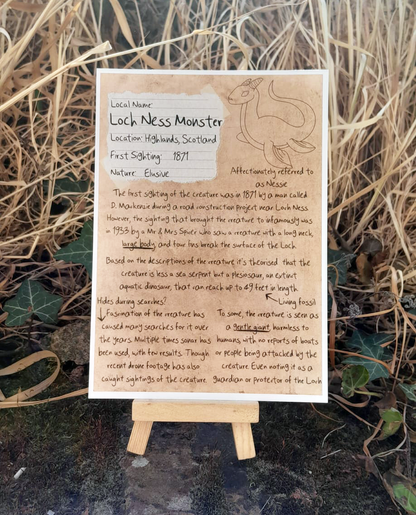 Local Name:
Loch Ness Monster
Location: Highlands, Scotland
First Sighting: 1871
Nature: Elusive
Affectionately referred to
as Nessie
The first sighting of the creature was in 1871 by a man called
D. Mackenzie during a road construction project near Loch Ness
However, the sighting that brought the creature to infamously was
in 1933 by a Mr & Mrs Spicer who saw a creature with a long neck,
large body and four fins break the surface of the Loch.
Based on the descriptions of the creature it's theorised that the
creature is less a sea serpent but a plesiosaur, an extinct
aquatic dinosaur, that can reach up to 49 feet in length
Hides during searches?
Fascination of the creature has
caused many searches for it over
the years. Multiple times sonar has
been used, with few results. Though
recent drone footage has also
caught sightings of the creature
Living fossil
To some, the creature is seen as
a gentle giant harmless to
humans, with no reports of boats
or people being attacked by the
creature. Even noting it as a
guardian or protector of the Loch